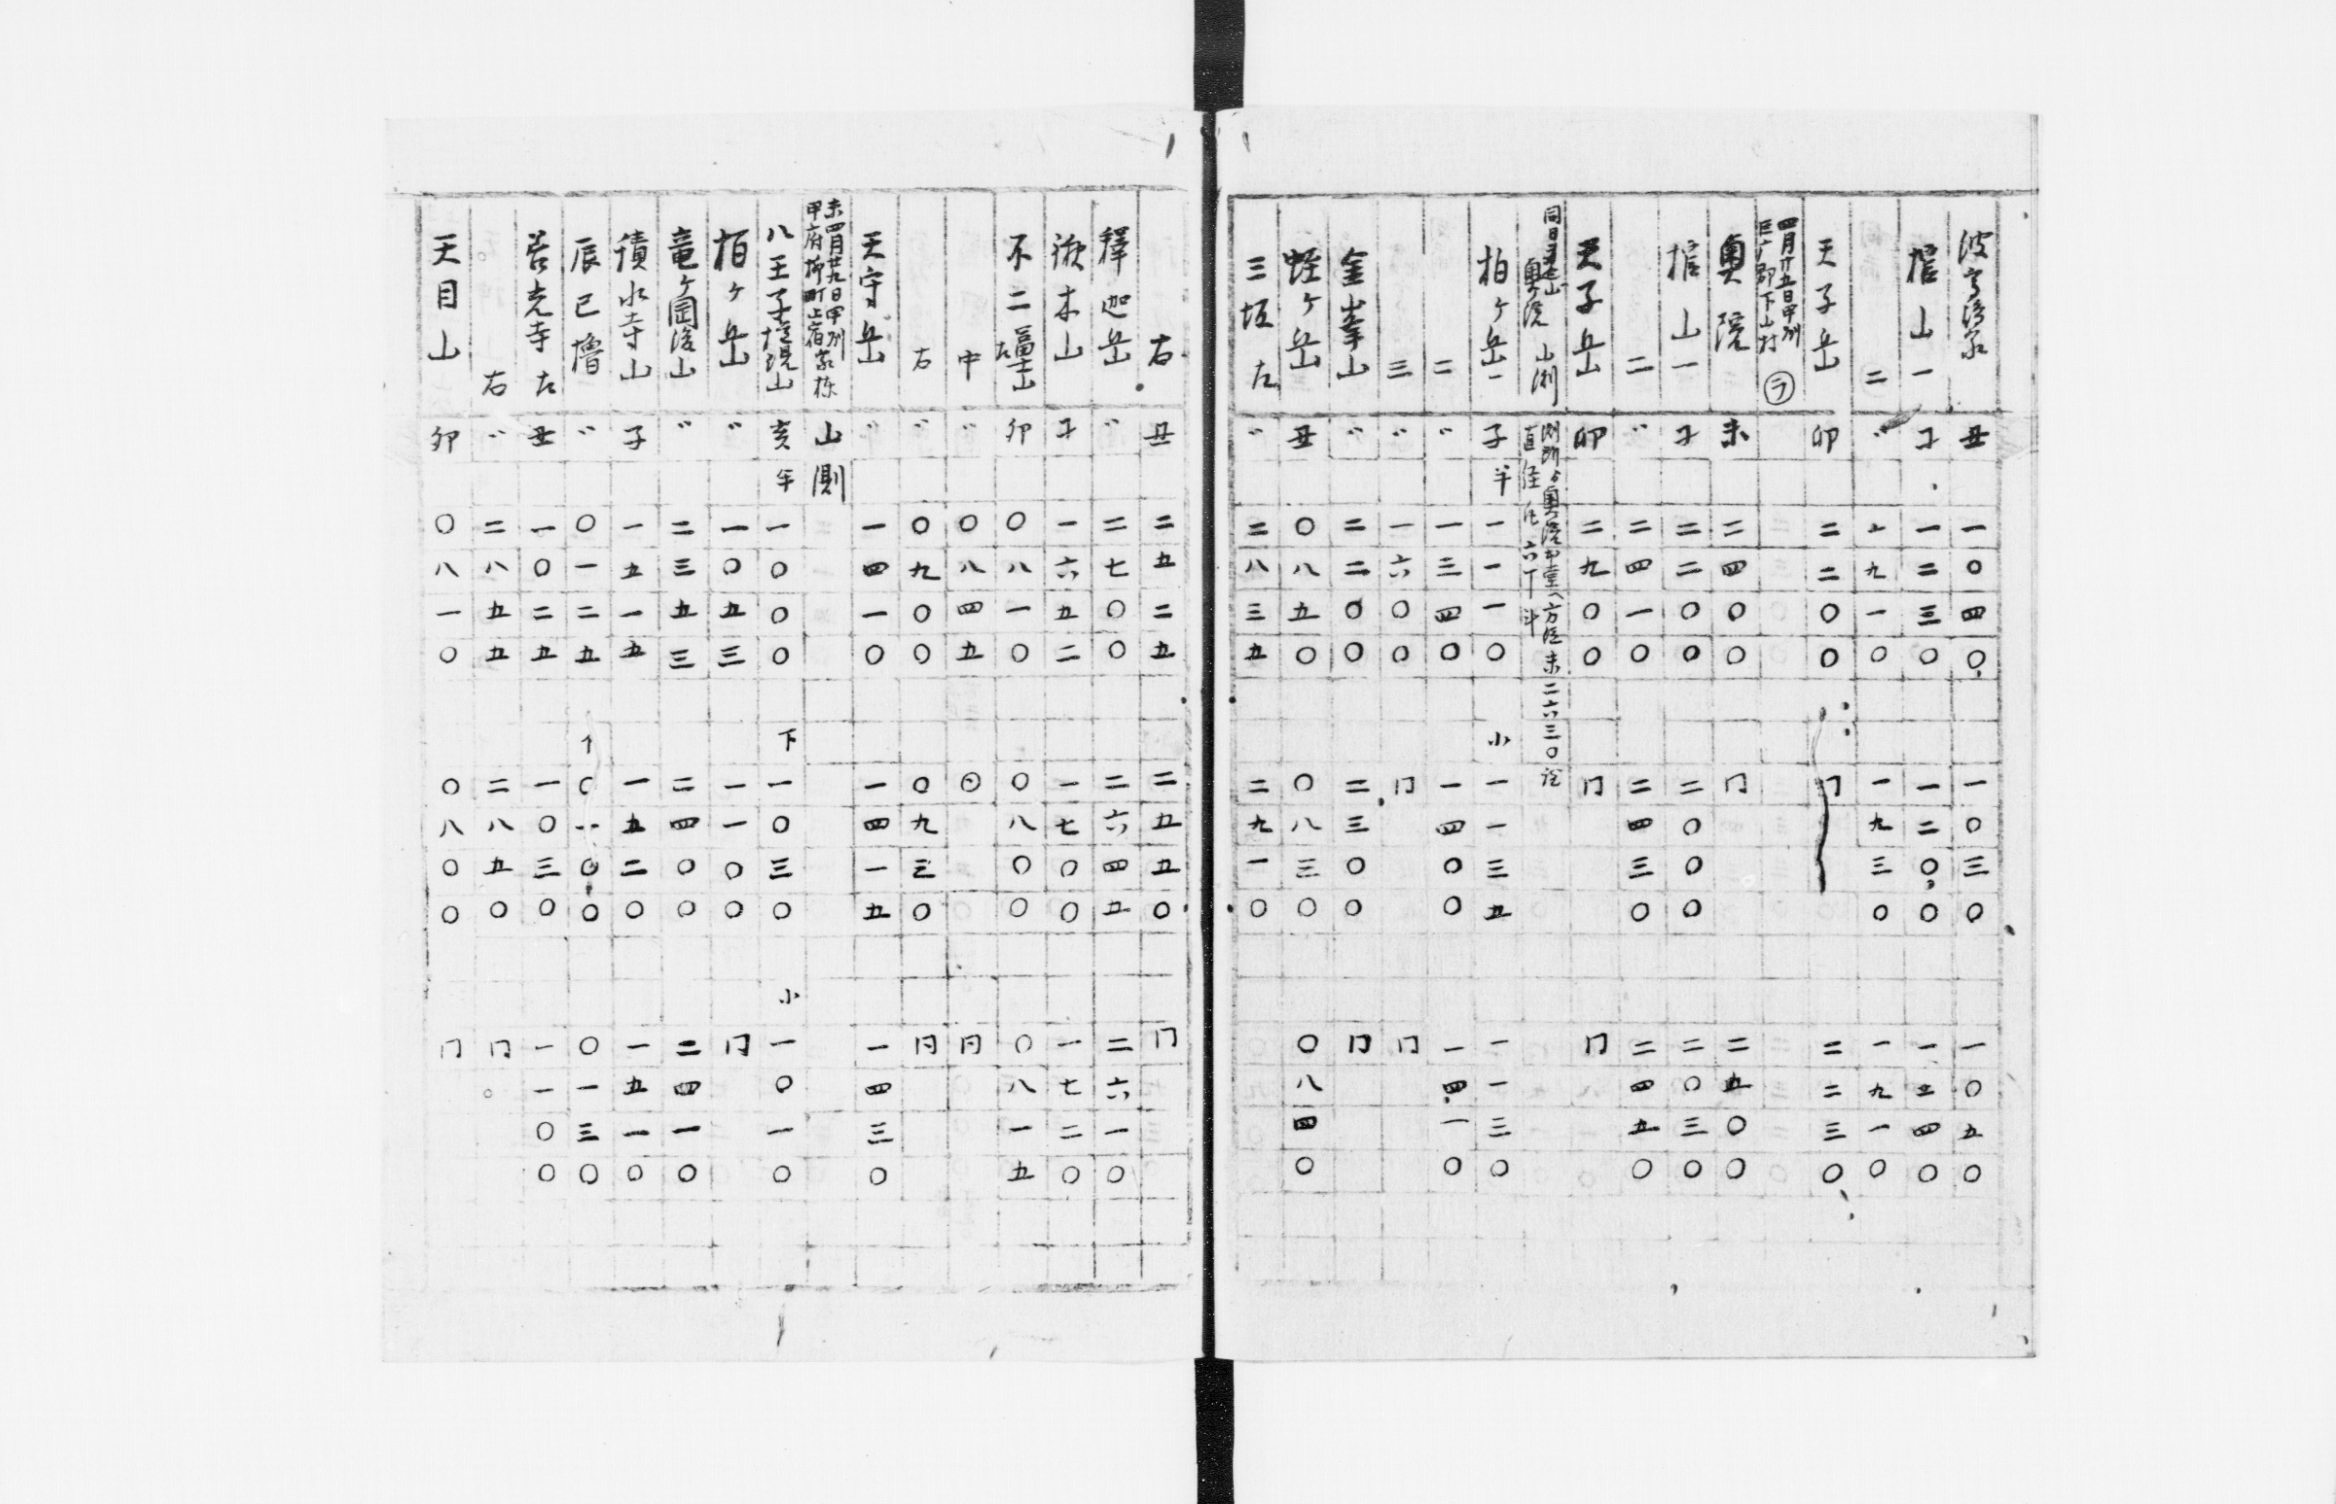 丑 一〇四〇 一〇三〇 一〇五〇
山一 子 一二三〇 一二〇〇 一二四〇
二 〃 一九一〇 一九三〇 一九一〇
天子岳 卯 二二〇〇 冂 二二三〇
四月廿五日甲州
巨广郡下山村 ㋶
奥院 未 二四〇〇 冂 二五〇〇
山一 子 二二〇〇 二〇〇〇 二〇三〇
二 〃 二四一〇 二四三〇 二四五〇
天子岳 卯 二九〇〇 冂 冂
同日
奥ヶ院 山測
直径 凡六丁斗
柏ヶ岳一 子半 一一一〇 小 一一三五 一一三〇
二 〃 一三四〇 一四〇〇 一四一〇
三 〃 一六〇〇 冂 冂
金峯山 〃 二二〇〇 二三〇〇 冂
蛭ヶ岳 丑 〇八五〇 〇八三〇 〇八四〇
三坂左 〃 二八三五 二九一〇
右 丑 二五二五 二五五〇 冂
釋迦岳 〃 二七〇〇 二六四五 二六一〇
木山 子 一六五二 一七〇〇 一七二〇
不二 左 卯 〇八一〇 〇八〇〇 〇八一五
中 〃 〇八四五 同
右 〃 〇九〇〇 〇九三〇 同
天守岳 〃 一四一〇 一四一五 一四三〇
未四月廿九日甲州
甲府柳町上宿家棟 山測
八王子権現山 亥半 一〇〇〇 下 一〇三〇 小 一〇一〇
柏ヶ岳 〃 一〇五三 一一〇〇 冂
竜ヶ岡後山 〃 二三五三 二四〇〇 二四一〇
積水寺山 子 一五一五 一五二〇 一五一〇
辰巳櫓 〃 〇一二五 〇一〇〇 〇一三〇
善光寺左 丑 一〇二五 一〇三〇 一一〇〇
右 〃 二八五五 二八五〇 冂
天目山 卯 〇八一〇 〇八〇〇 冂